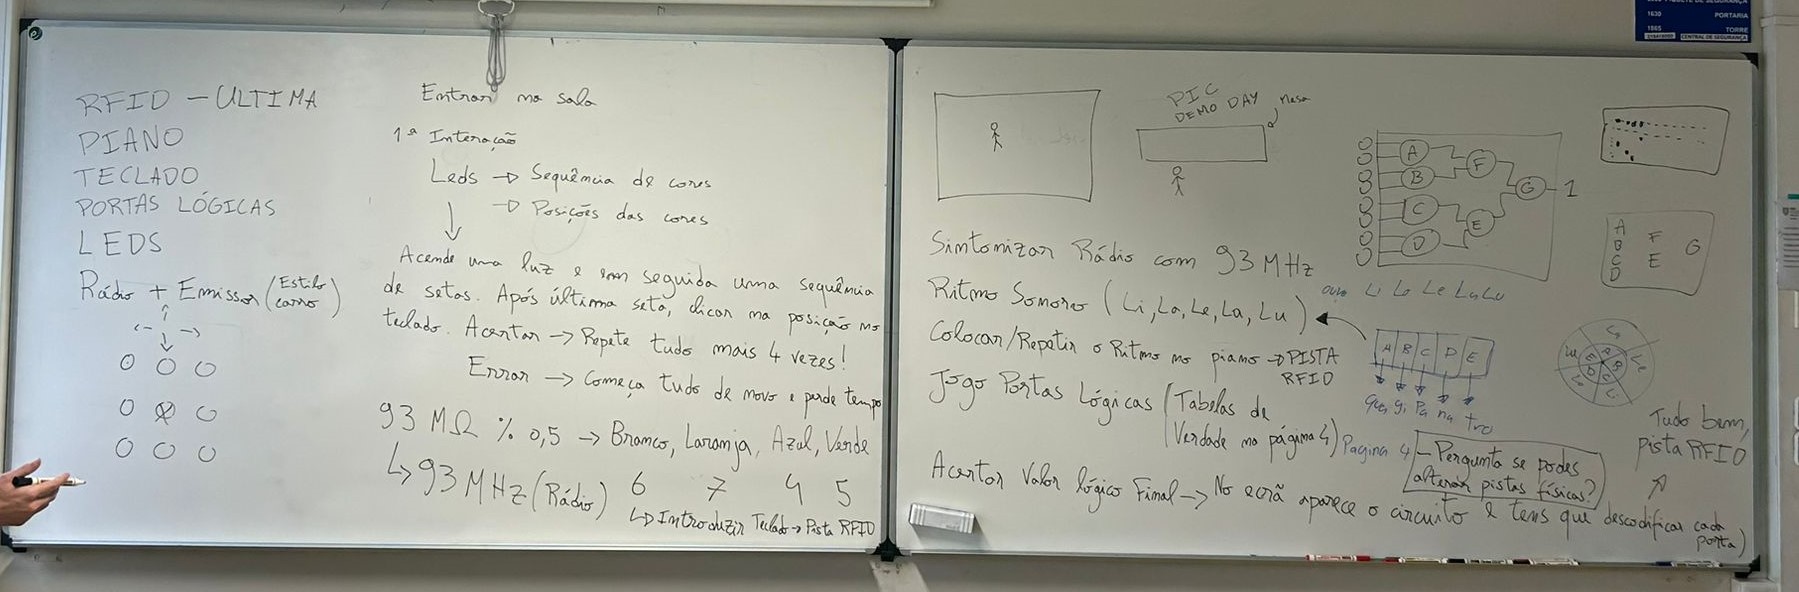 RFID - ULTIMA
PIANO
TECLADO
PORTAS LÓGICAS
LEDS
Rádio + Emissor (Estilo carro)
Entrar na sala
1ª Interação
Leds → Sequência de cores
→ Posições das cores
Acende uma luz e em seguida uma sequência
de setas. Após última seta, clicar na posição no
teclado. Acertar → Repete tudo mais 4 vezes!
Errar → Começa tudo de novo e perde tempo
93 MΩ % 0,5 → Branco, Laranja, Azul, Verde
↳ 93 MHz (Rádio) 6 7 4 5
↳ Introduzir Teclado → Pista RFID
PIC
DEMO DAY
Mesa
A
B
C
D
F
E
G
1
A
B
C
D
F
E
G
Sintonizar Rádio com 93 MHz
Ritmo Sonoro (Li, La, Le, La, Lu)
Colocar/Repetir o Ritmo no piano → PISTA
RFID
A B C D E
Jogo Portas Lógicas (Tabelas de
Verdade na página 4)
Pagina 4
- Pergunta se podes
alterar pistas físicas?
Tudo bem,
pista RFID
Acertar Valor lógico Final → No ecrã aparece o circuito e tens que descodificar cada
porta)
1630 PORTARIA
1665 TORRE
CENTRAL DE SEGURANÇA